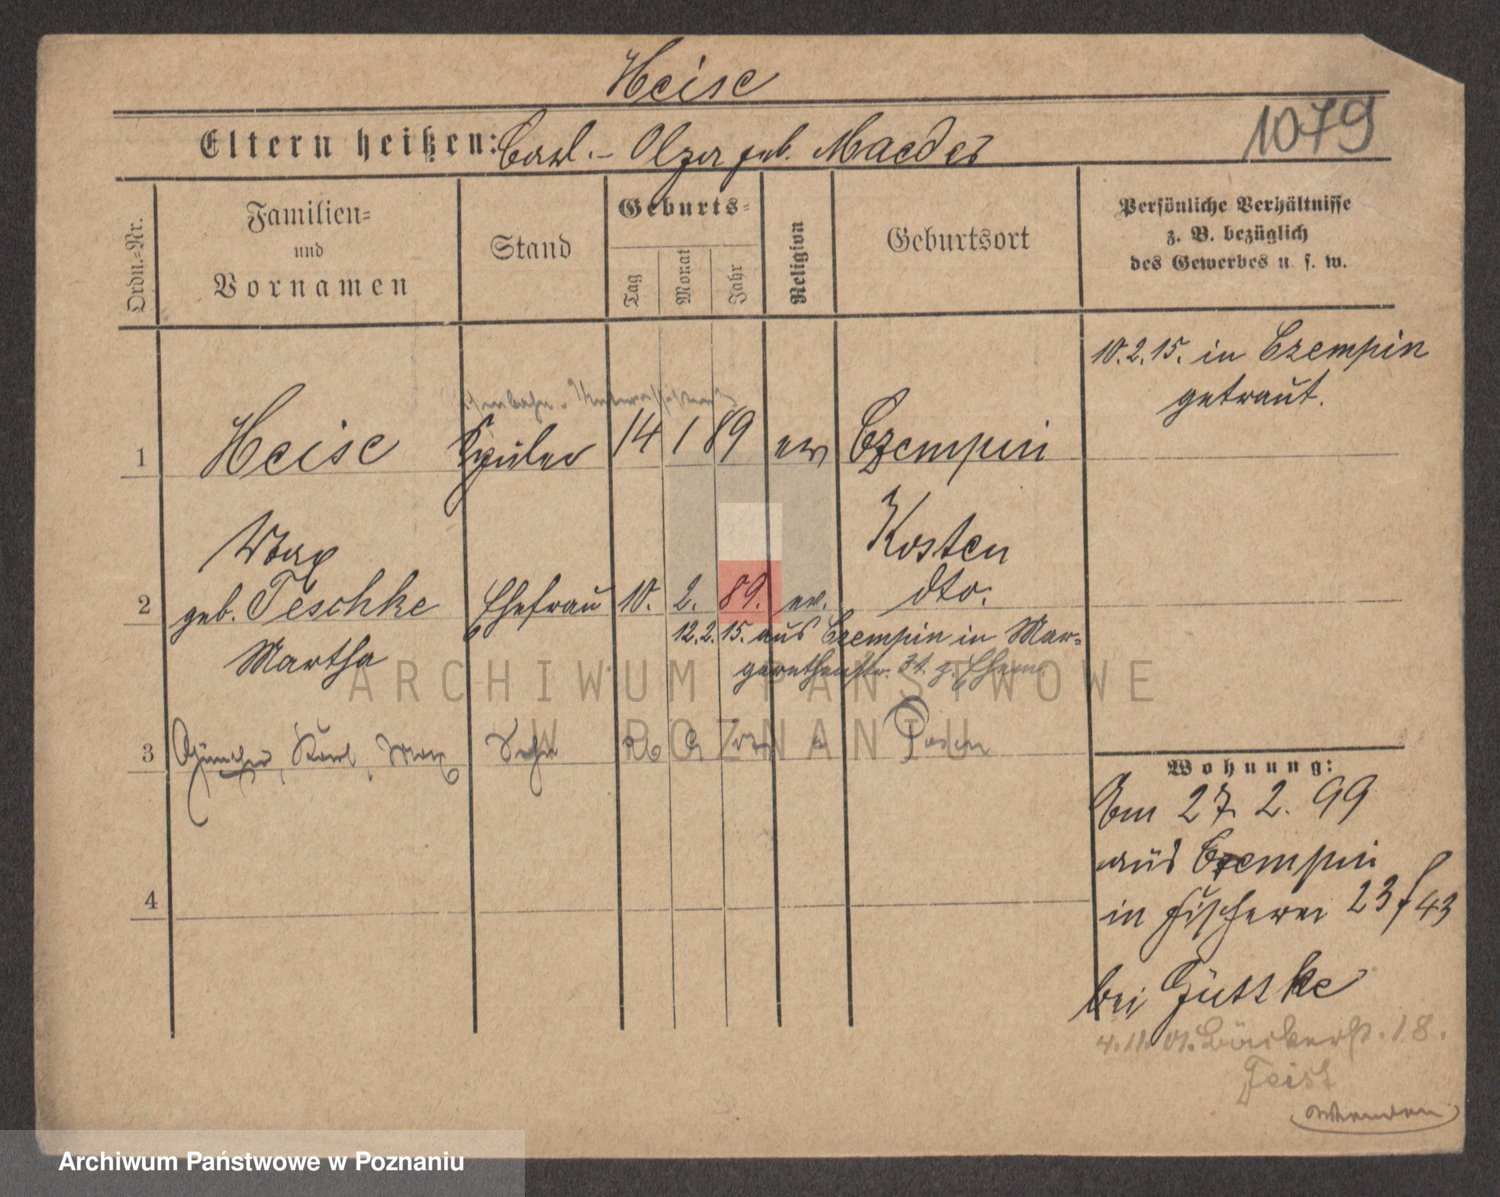 Heise
1079
Eltern heißen: Carl. – Olga geb. Maeder
Ordn.=Nr.
Familien=
und
Vornamen
Stand
Geburts=
Tag
Monat
Jahr
Religion
Geburtsort
Persönliche Verhältnisse
z. B. bezüglich
des Gewerbes u. s. w.
10.2.15. in Czempin
getraut.
1 Heise Schüler 14 1 89 ev Czempin
Max
Kosten
2 geb. Teschke Ehefrau 10. 2. 89. ev. dto.
Martha
12.2.15. aus Czempin in Mar=
garethenstr. 31.
3 Günther, Karl, Max Sohn Posen
Wohnung:
Am 27. 2. 99
aus Czempin
in Fischerei 23/43
bei Güttke
4.11.01. Bäckerstr. 18.
Feist
4
ARCHIWUM PAŃSTWOWE
W POZNANIU
Archiwum Państwowe w Poznaniu